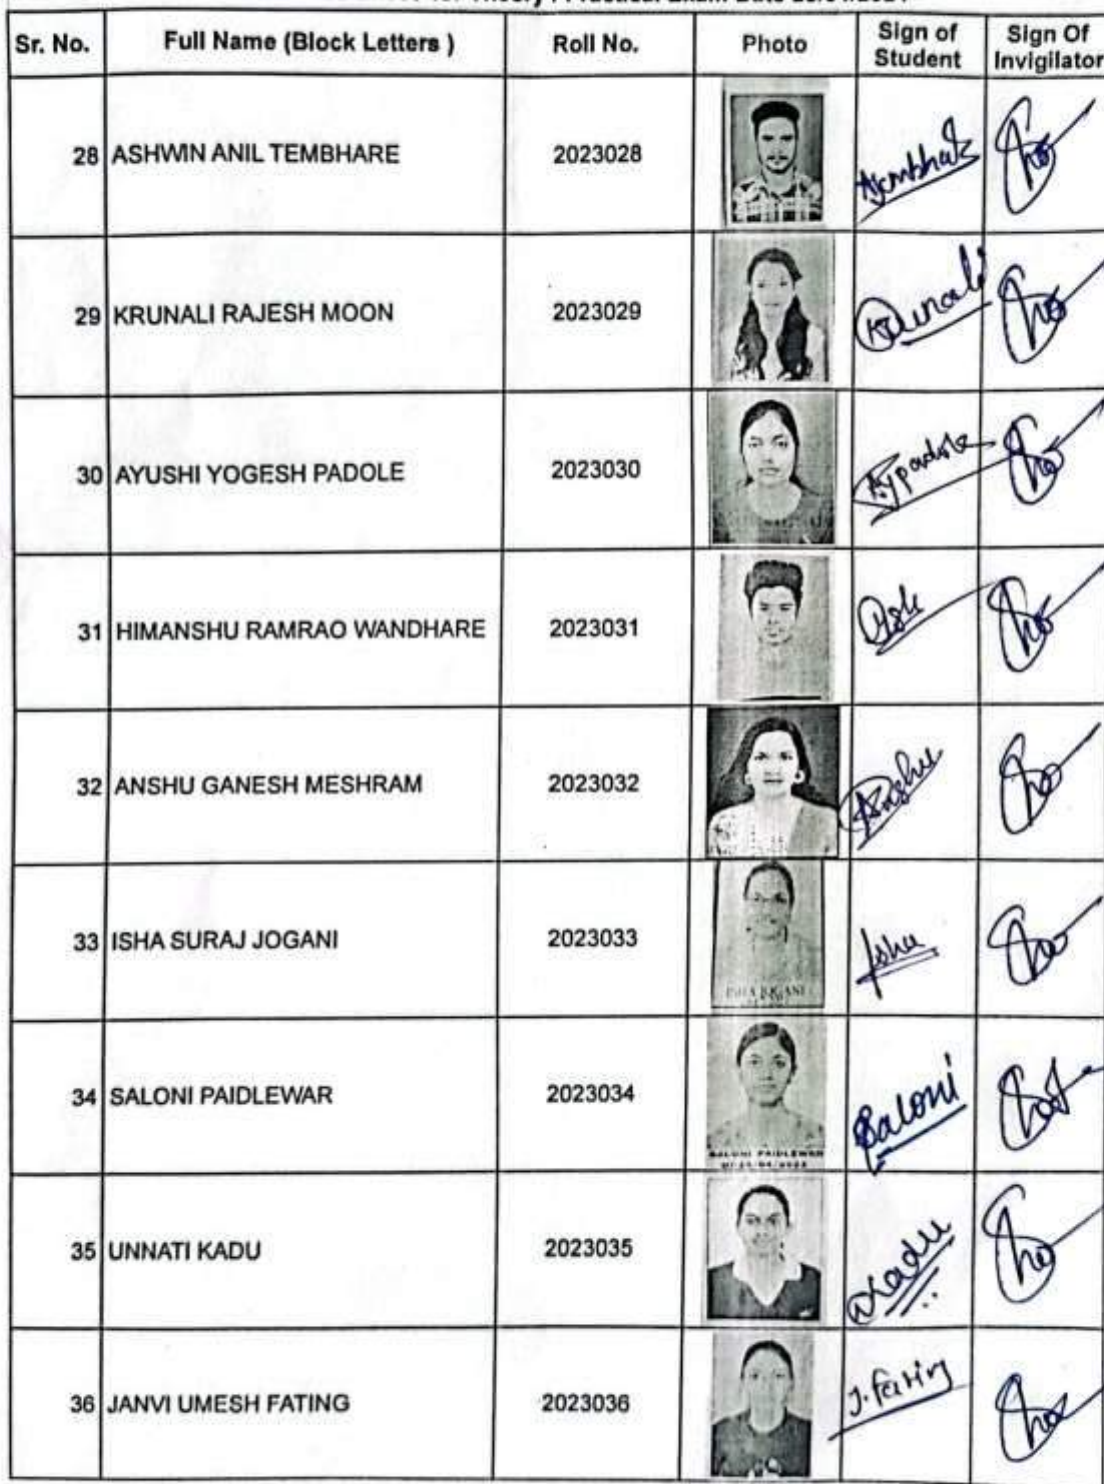 Theory / Practical Exam Date
Sr. No. Full Name (Block Letters ) Roll No. Photo Sign of Student Sign Of Invigilator
28 ASHWIN ANIL TEMBHARE 2023028
29 KRUNALI RAJESH MOON 2023029 Krunali
30 AYUSHI YOGESH PADOLE 2023030 Aypadole
31 HIMANSHU RAMRAO WANDHARE 2023031
32 ANSHU GANESH MESHRAM 2023032 Anshu
33 ISHA SURAJ JOGANI 2023033 Isha
ISHA JOGANI
34 SALONI PAIDLEWAR 2023034 Saloni
SALONI PAIDLEWAR
35 UNNATI KADU 2023035 Kadu
36 JANVI UMESH FATING 2023036 J. Fating